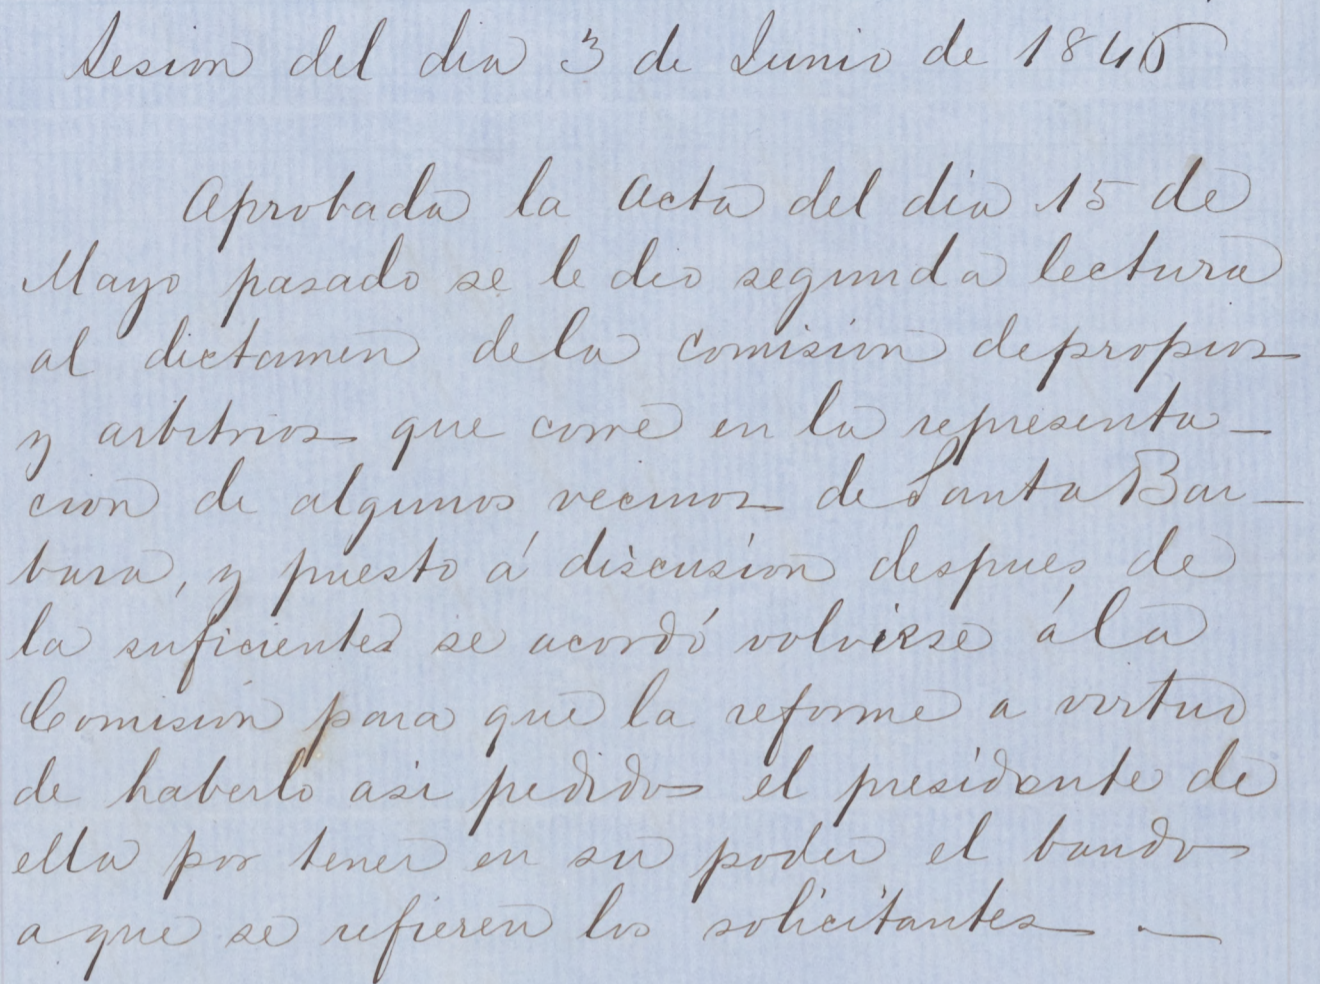 Sesion del dia 3 de Junio de 1845
Aprobada la acta del dia 15 de
Mayo pasado se le dio segunda lectura
al dictamen dela comision depropios
y arbitrios que corre en la representa-
cion de algunos vecinos de Santa Bar-
bara, y puesto á discusion despues de
la suficientes se acordó volvirse á la
Comision para que la reforme a virtud
de haberlo asi pedido el presidente de
ella por tener en su poder el bando
a que se refieren los solicitantes . —